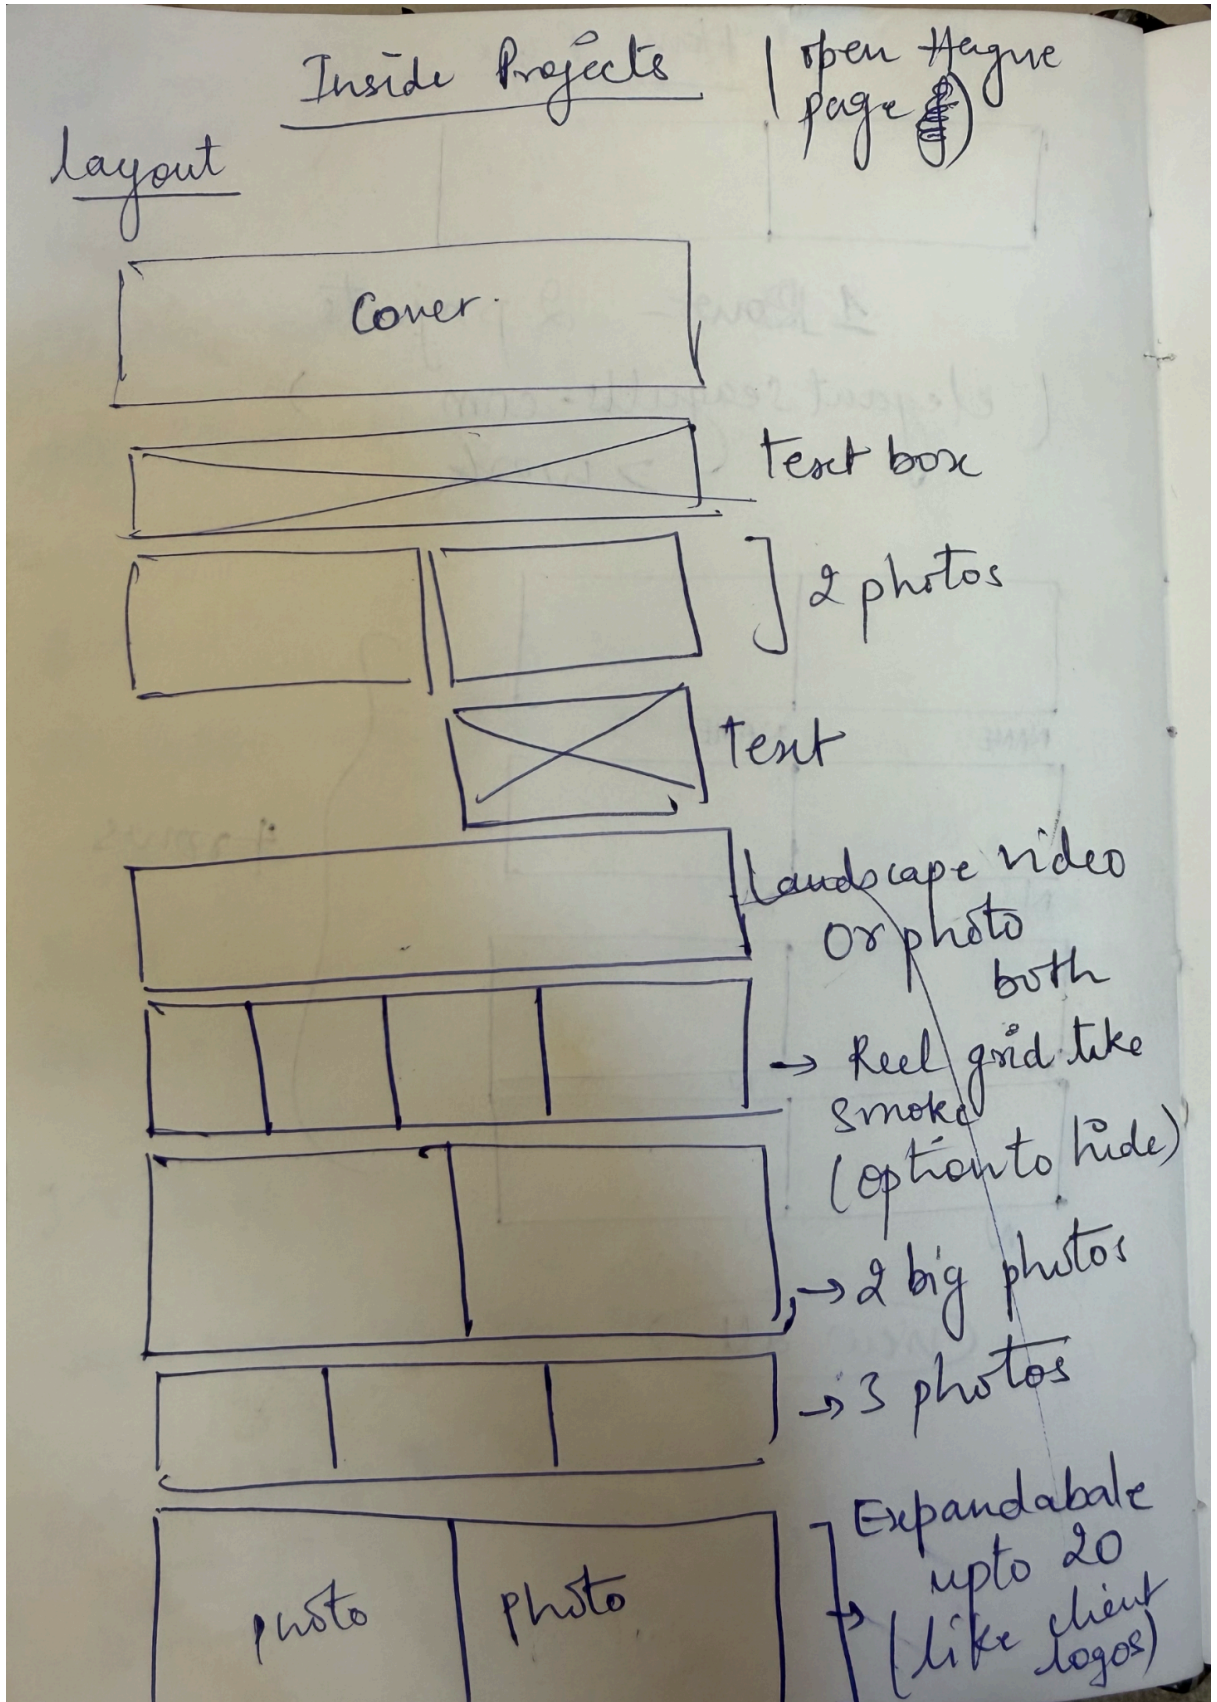 Inside Projects
(open Hague
page )
layout
Cover.
text box
2 photos
text
Landscape video
or photo
both
→ Reel grid like
smoke
(option to hide)
→ 2 big photos
→ 3 photos
Expandabale
upto 20
(like client
logos)
photo photo